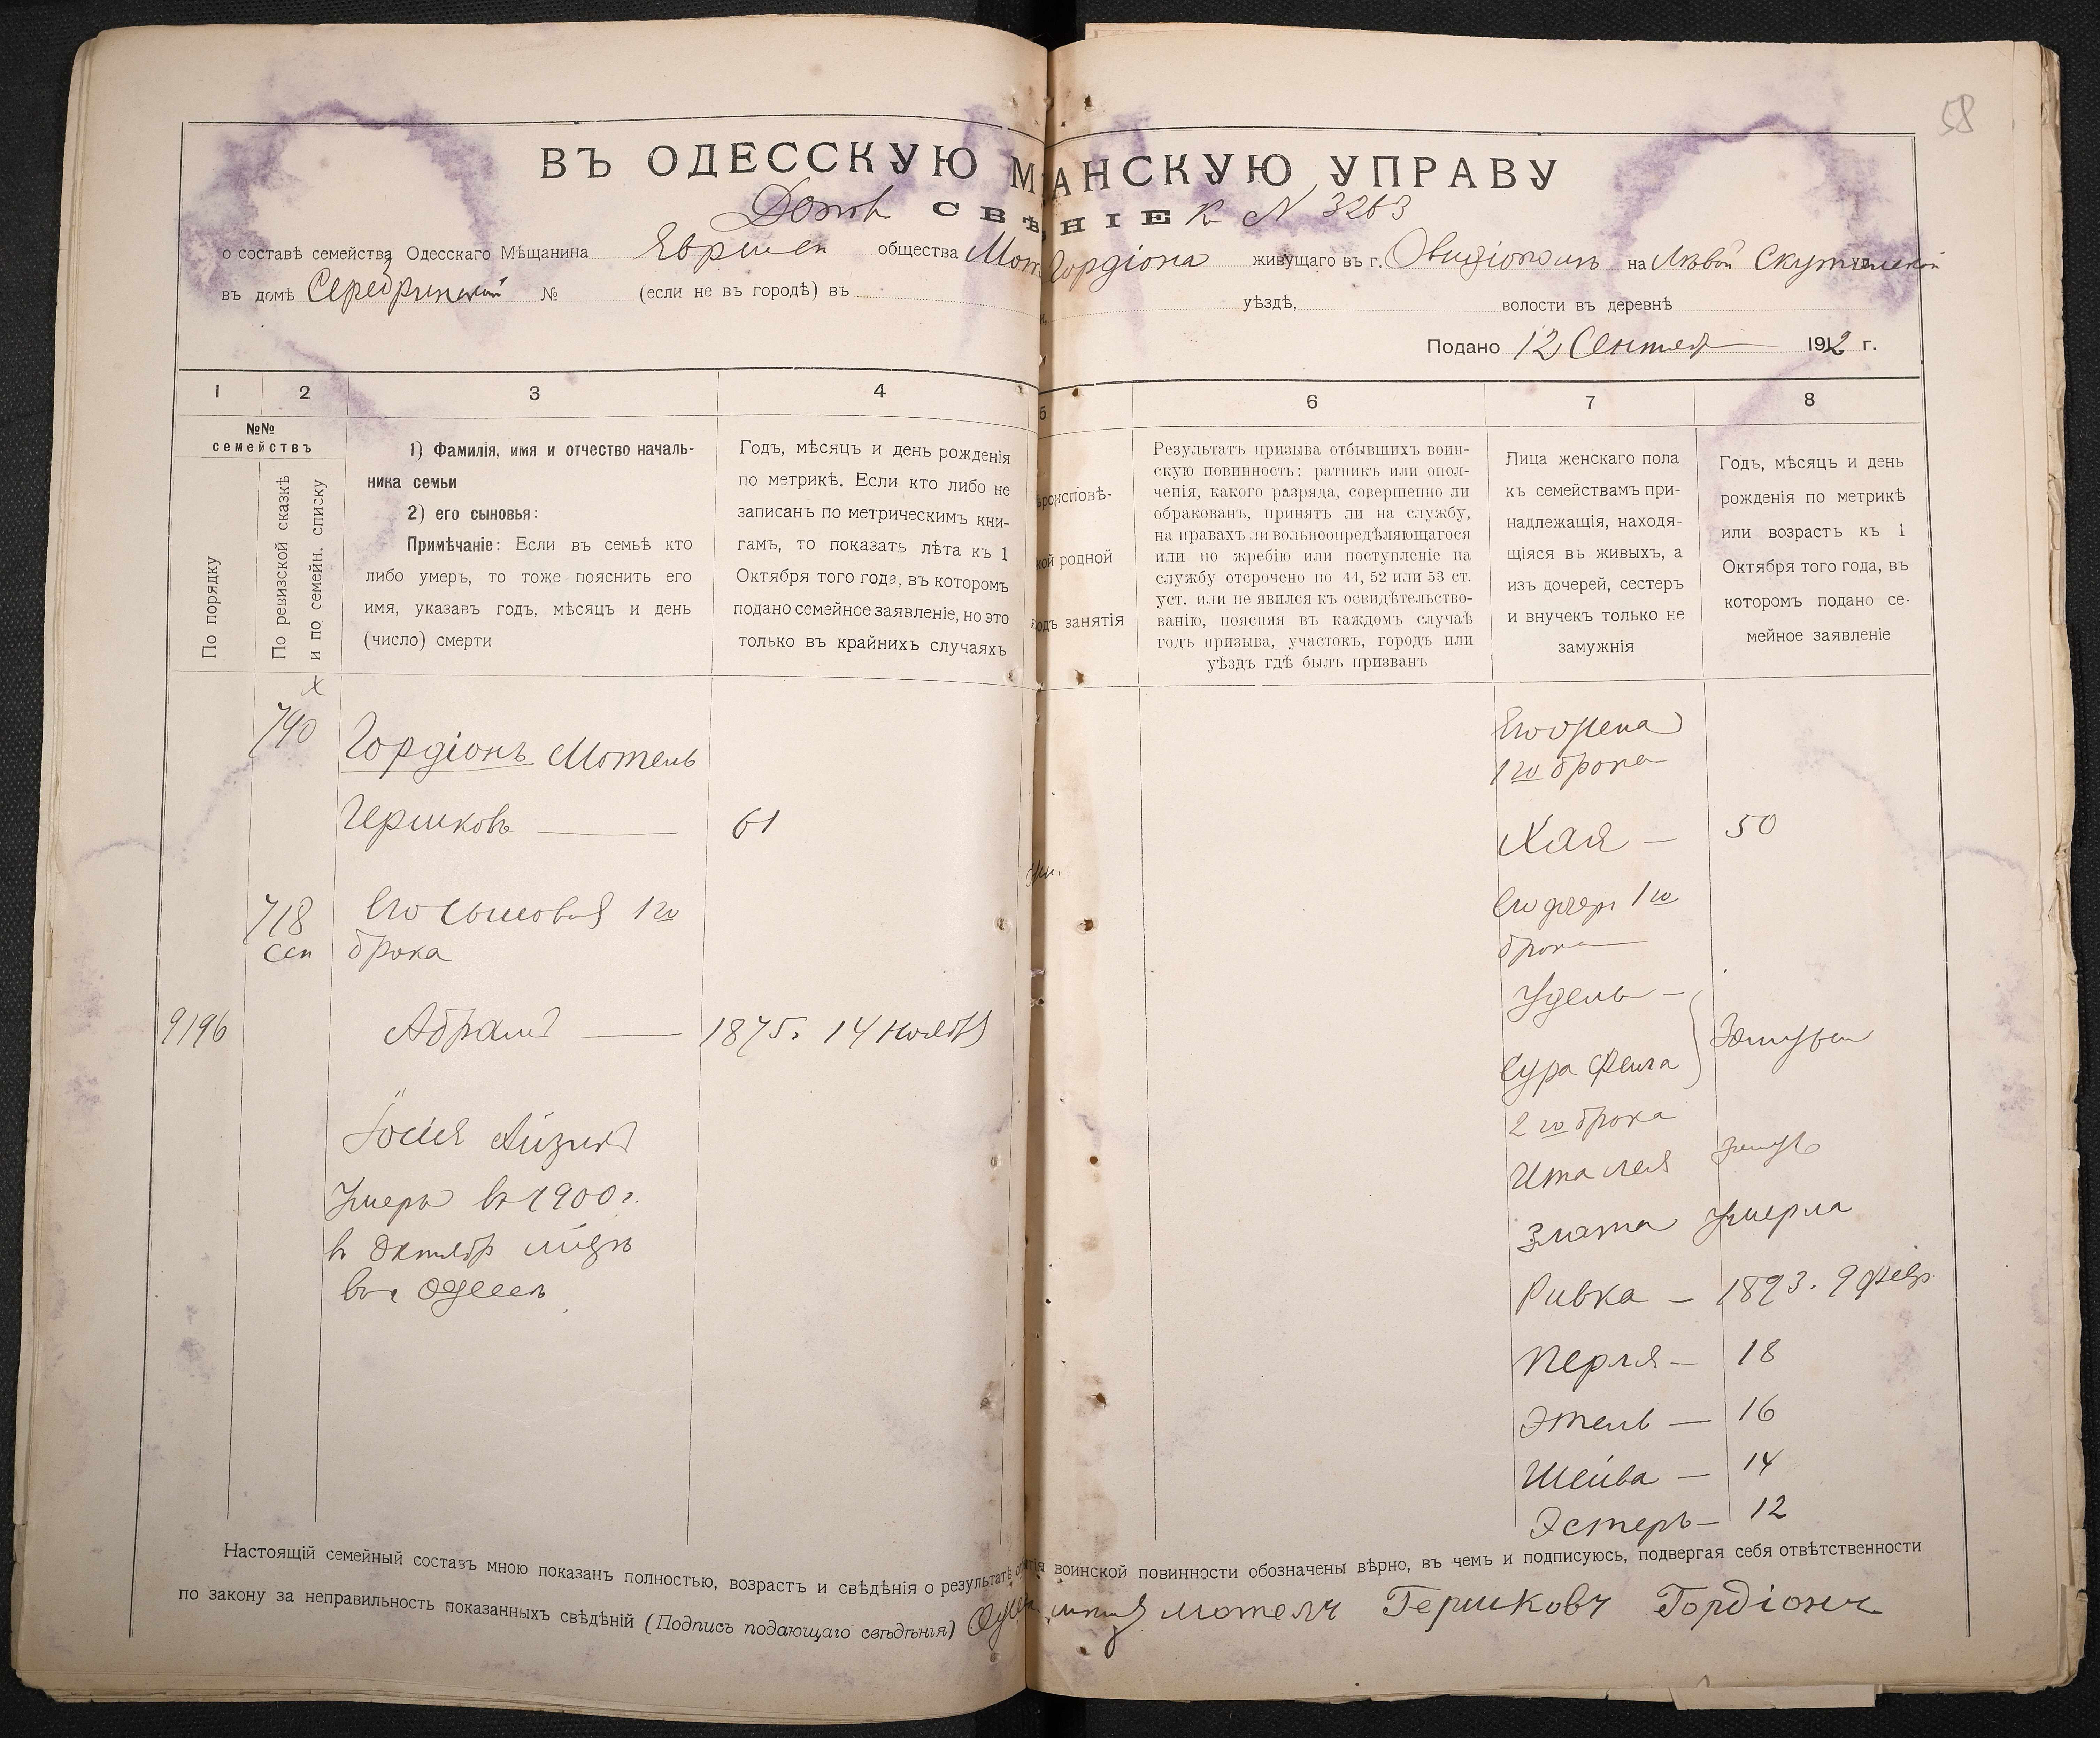 58
ВЪ ОДЕССКУЮ М АНСКУЮ УПРАВУ
СВѢ НІЕ к N 3263
о составѣ семейства Одесскаго Мѣщанина общества Мот Гордіона живущаго въ г. Овидіополь на
въ домѣ № (если не въ городѣ) въ уѣздѣ, волости въ деревнѣ
Подано 12 Сентяб 1912 г.
1 2 3 4 5 6 7 8
№№
семействъ
По порядку
По ревизской сказкѣ
и по семейн. списку
1) Фамилія, имя и отчество началь-
ника семьи
2) его сыновья:
Примѣчаніе: Если въ семьѣ кто
либо умеръ, то тоже пояснить его
имя, указавъ годъ, мѣсяцъ и день
(число) смерти
Годъ, мѣсяцъ и день рожденія
по метрикѣ. Если кто либо не
записанъ по метрическимъ кни-
гамъ, то показать лѣта къ 1
Октября того года, въ которомъ
подано семейное заявленіе, но это
только въ крайнихъ случаяхъ
ѣроисповѣ-
кой родной
одъ занятія
Результатъ призыва отбывшихъ воин-
скую повинность: ратникъ или опол-
ченія, какого разряда, совершенно ли
обракованъ, принятъ ли на службу,
на правахъ ли вольноопредѣляющагося
или по жребію или поступленіе на
службу отсрочено по 44, 52 или 53 ст.
уст. или не явился къ освидѣтельство-
ванію, поясняя въ каждомъ случаѣ
годъ призыва, участокъ, городъ или
уѣздъ гдѣ былъ призванъ
Лица женскаго пола
къ семействамъ при-
надлежащія, находя-
щіяся въ живыхъ, а
изъ дочерей, сестеръ
и внучекъ только не
замужнія
Годъ, мѣсяцъ и день
рожденія по метрикѣ
или возрастъ къ 1
Октября того года, въ
которомъ подано се-
мейное заявленіе
х
790 Гордіонъ Мотель
Гершковъ — 61
718 Его сыновья 1го
сем брака
9196 Абрамъ — 1875. 14 Ноябр
Іосія Айзикъ
Умеръ въ 1900 г.
в Октябр мцѣ
в г Одессѣ
Его жена
1го брака
Хая — 50
Его дочери 1го
брака
Удель —
Сура Фейга
Замужем
2го брака
Ита Лея замуж
Злата Умерла
Ривка — 1893. 9 февр.
Перля — 18
Этель — 16
Шейва — 14
Эстеръ — 12
Настоящій семейный составъ мною показанъ полностью, возрастъ и свѣдѣнія о результатѣ воинской повинности обозначены вѣрно, въ чемъ и подписуюсь, подвергая себя отвѣтственности
по закону за неправильность показанныхъ свѣдѣній (Подпись подающаго свѣдѣнія) мотель Гершковъ Гордіонъ